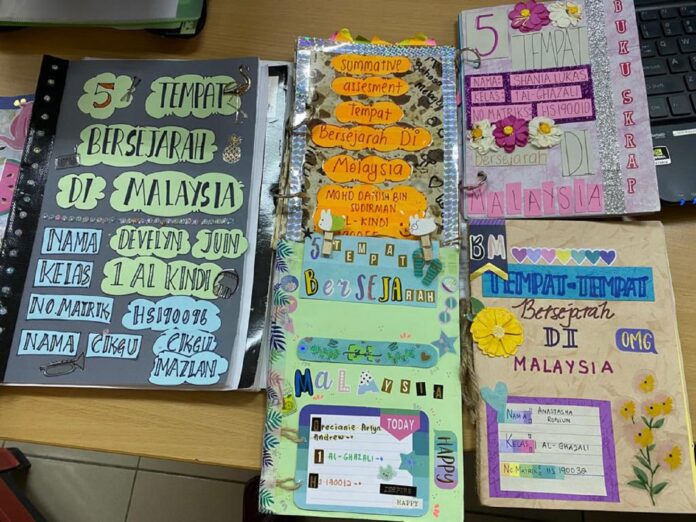 5 TEMPAT
BERSEJARAH
DI MALAYSIA
NAMA DEVELYN JUIN
KELAS 1 AL KINDI
NO.MATRIK HS190096
NAMA CIKGU CIKGU
MAZLAN
summative
assesment
Tempat
Bersejarah Di
Malaysia
MOHD DANISH BIN
SUDIRMAN
L-KINDI
5 TEMPAT
BERSEJARAH
MALAYSIA
Arecianie Arlyn
Andrew
1 AL-GHAZALI
HS 190012
TODAY
INSPIRE
HAPPY
HAPPY
5
TEMPAT
NAMA: SHANIA LUKAS
KELAS: 1 AL-GHAZALI
NO.MATRIKS: HS190010
Bersejarah DI
MALAYSIA
BUKU SKRAP
BM
TEMPAT-TEMPAT
Bersejarah
DI
MALAYSIA
OMG
Nama: ANASTASHA
Kelas: AL-GHAZALI
No Matrik: HS 190039